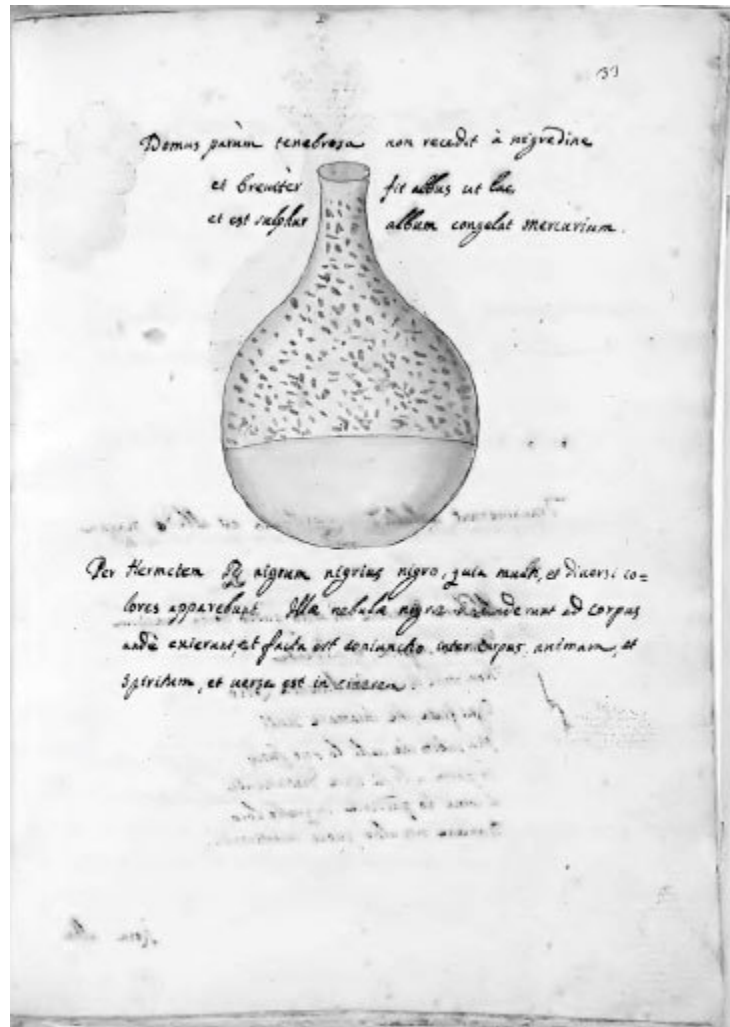 33
Domus parùm tenebrosa non recedit à nigredine
et breuiter fit albus ut lac
et est sulphur album congelat mercurium.
Per Hermetem nigrum nigrius nigro, quia multi, et diuersi co=
lores apparebunt. Illæ nebulæ nigræ ad corpus
undè exierant, et facta est coniunctio inter corpus, animam, et
Spiritum, et uersa est in cinerem.